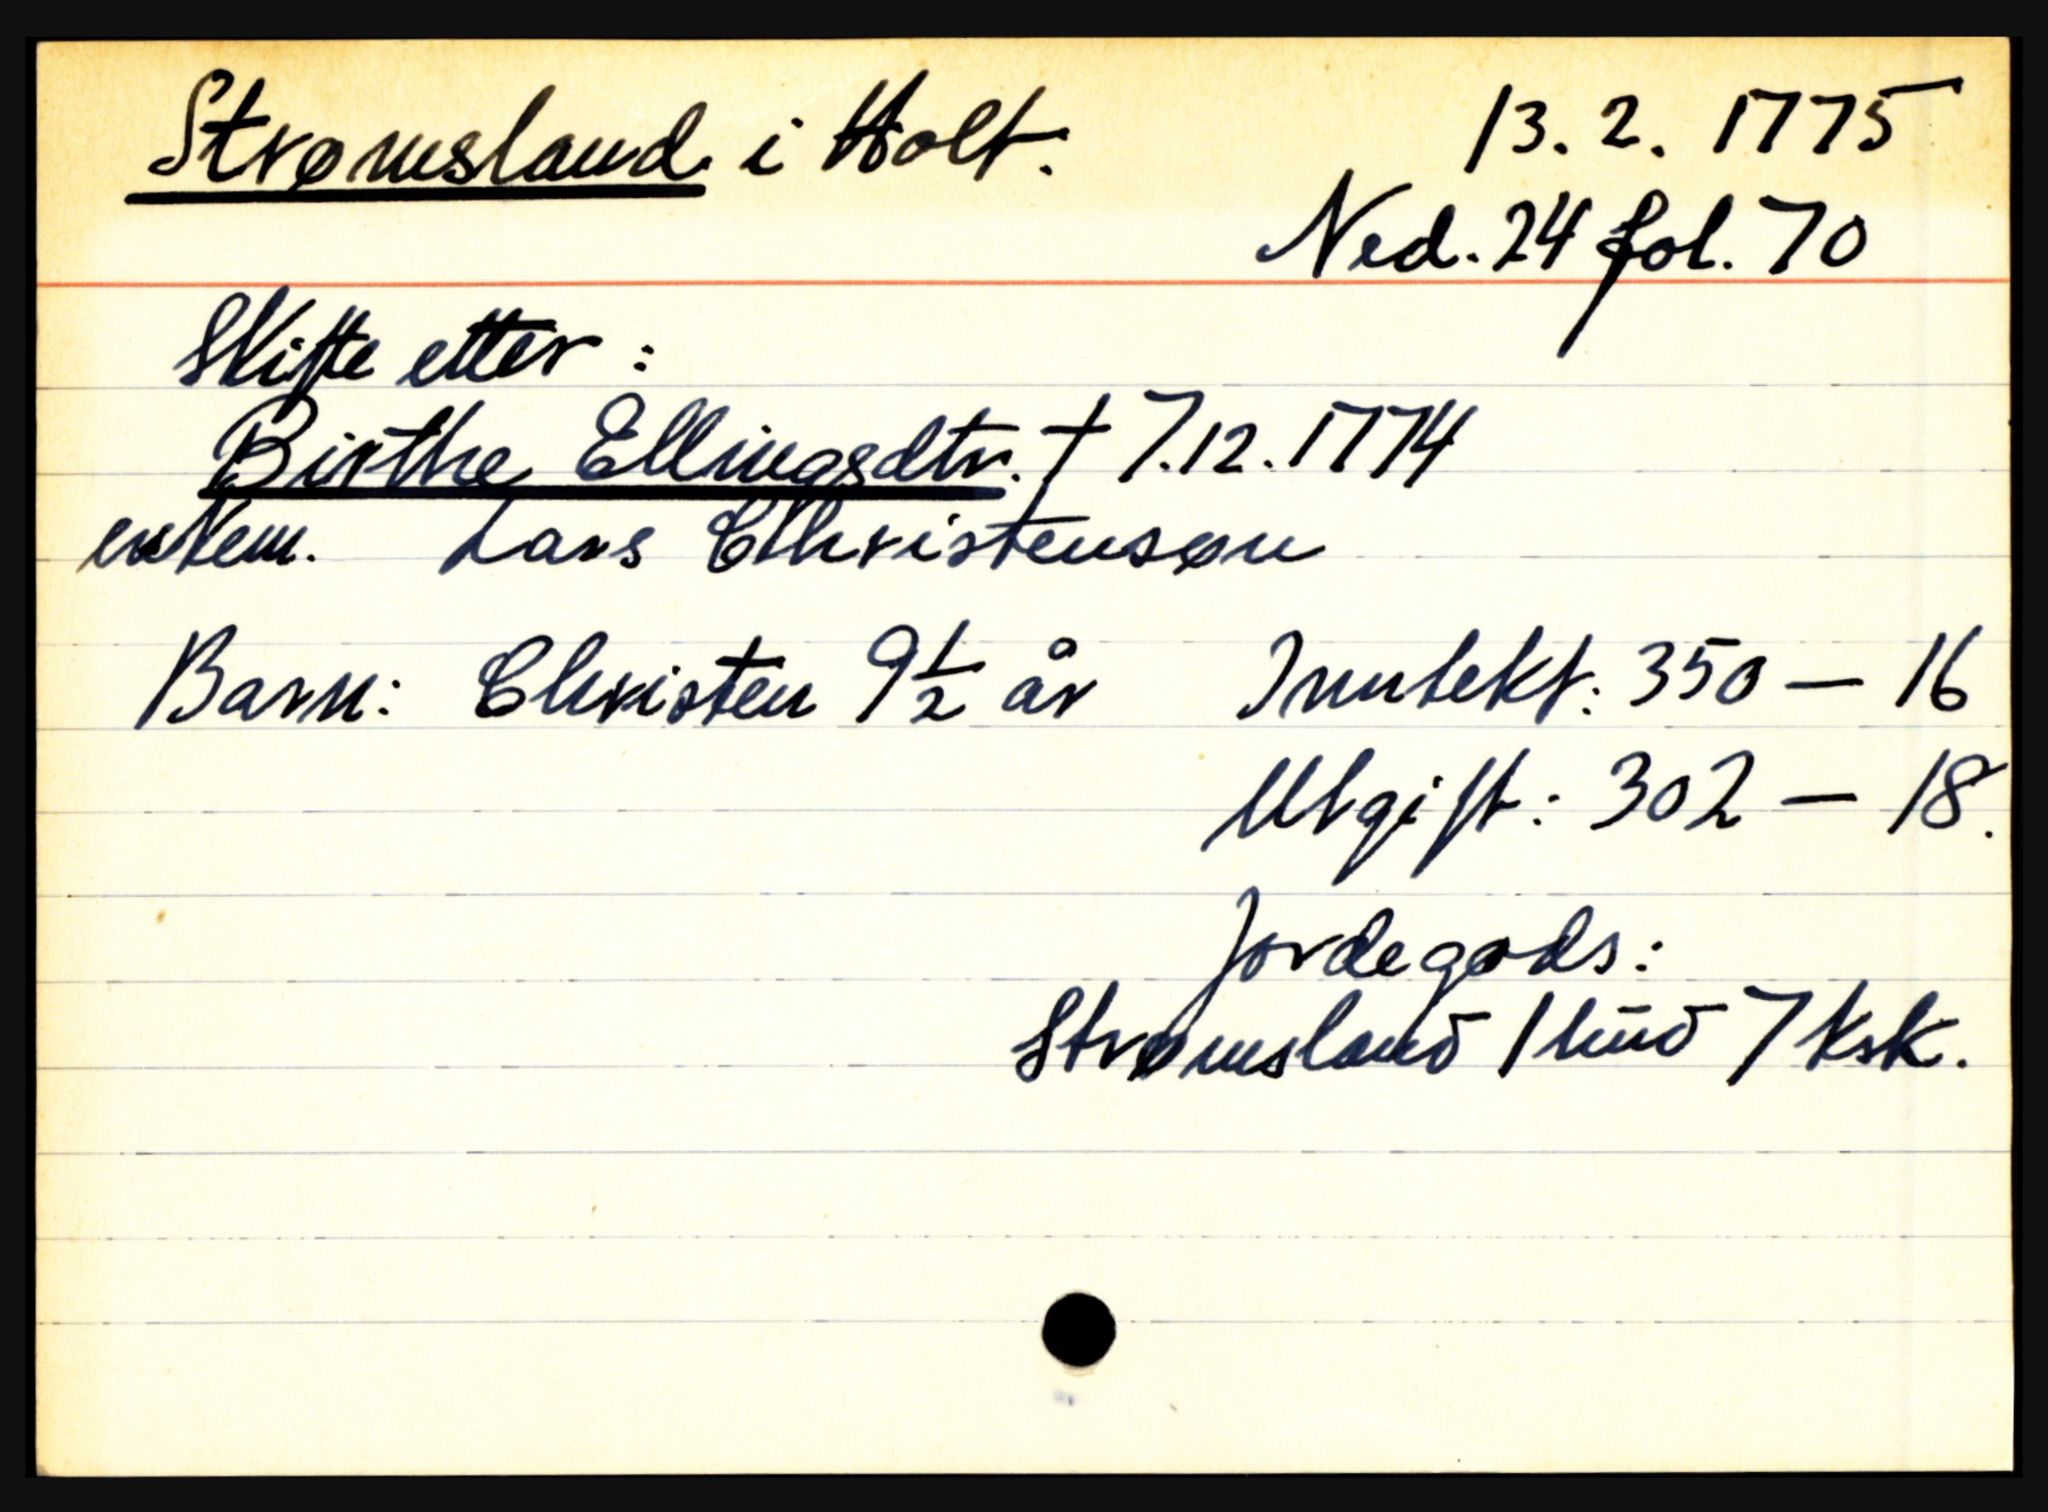 Strømsland i Holt. 13.2.1775
Ned. 24 fol. 70
Skifte etter:
Birthe Ellingsdtr. † 7.12.1774
enkem. Lars Christensøn
Barn: Christen 9 1/2 år Inntekt: 350 — 16
Utgift: 302 — 18.
Jordegods:
Strømsland 1 hud 7 ksk.